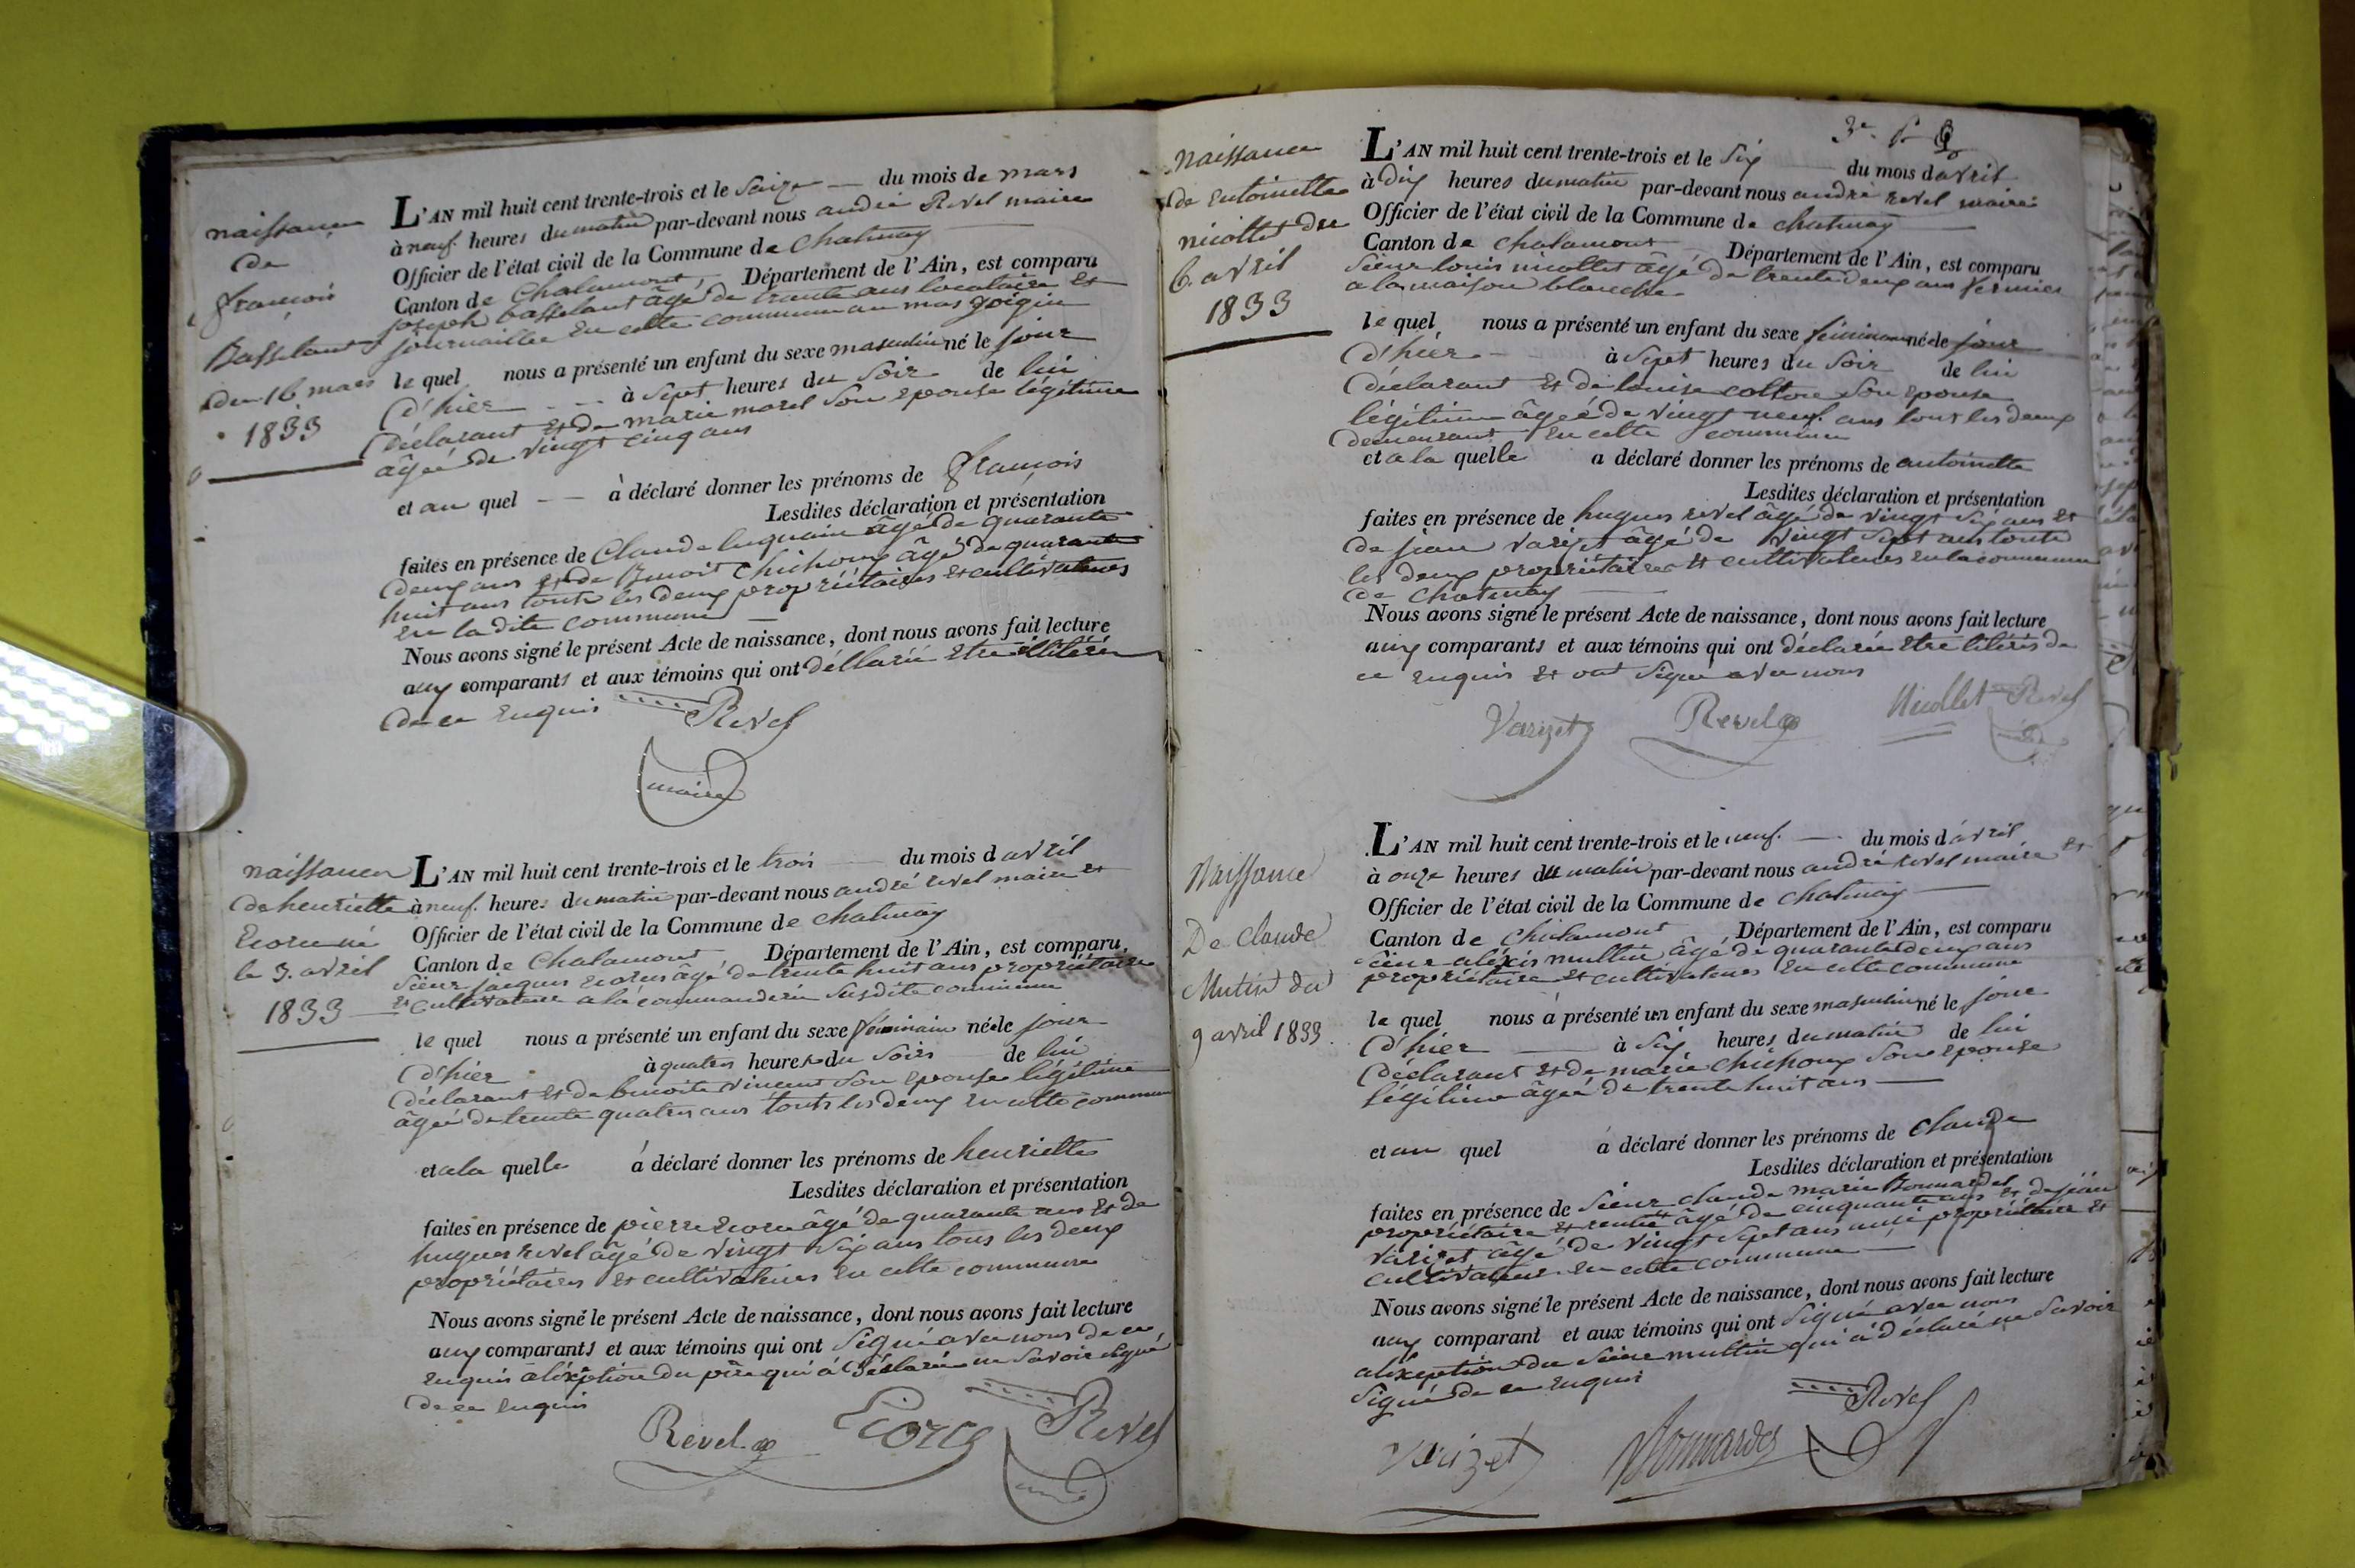 naissance
de
françois
Basselant
du 16 mars
1833
L'AN mil huit cent trente-trois et le seize du mois de mars
à neuf heures du matin par-devant nous andré Revel maire
Officier de l'état civil de la Commune de Chatenay
Canton de Chalamont, Département de l'Ain, est comparu
joseph basselant âgé de trente ans locataire et
journaillier en cette commune au mas
le quel nous a présenté un enfant du sexe masculin né le jour
d'hier à sept heures du soir de lui
déclarant et de marie morel son epouse légitime
âgée de vingt cinq ans
et au quel à déclaré donner les prénoms de françois
Lesdites déclaration et présentation
faites en présence de Claude âgé de quarante
deux ans et de Benoit Chichoux âgé de quarante
huit ans touts les deux propriétaires et cultivateurs
en la dite commune
Nous avons signé le présent Acte de naissance, dont nous avons fait lecture
aux comparants et aux témoins qui ont déllaré etre illitéré
de ce enquis Revel
maire
naissance
de henriette
né
le 3. avril
1833
L'AN mil huit cent trente-trois et le trois du mois d avril
à neuf. heures du matin par-devant nous andré revel maire et
Officier de l'état civil de la Commune de chatenay
Canton de Chalamont Département de l'Ain, est comparu
sieur jacques âgé de trente huit ans propriétaire
et cultivateur a la commanderie susdite commune
le quel nous a présenté un enfant du sexe féminin née le jour
d'hier à quatres heures du soir de lui
déclarant et de benoite vincent son epouse légitime
âgée de trente quatres ans touts les deux en cette commune
et a la quelle à déclaré donner les prénoms de henriette
Lesdites déclaration et présentation
faites en présence de pierre âgé de quarante ans et de
hugues revel âgé de vingt six ans tous les deux
propriétaires et cultivateurs en cette commune
Nous avons signé le présent Acte de naissance, dont nous avons fait lecture
aux comparants et aux témoins qui ont signé avec nous de ce
enquis a léxeption du père qui à déclaré ne savoir signé
de ce enquis
Revel Revel
3e.
naissance
de antoinette
nicollet du
6. avril
1833
L'AN mil huit cent trente-trois et le six du mois d avril
à dix heures du matin par-devant nous andré revel maire
Officier de l'état civil de la Commune de chatenay
Canton de Chalamont Département de l'Ain, est comparu
sieur louis nicollet âgé de trente deux ans fermier
a la maison blanche
le quel nous a présenté un enfant du sexe féminin née le jour
d'hier à sept heures du soir de lui
déclarant et de louise son epouse
légitime âgée de vingt neuf. ans tout les deux
demeurant en cette commune
et a la quelle a déclaré donner les prénoms de antoinette
Lesdites déclaration et présentation
faites en présence de hugues revel âgé de vingt six ans et
de jean varizet âgé de vingt sept ans touts
les deux propriétaires et cultivateurs en la commune
de Chatenay
Nous avons signé le présent Acte de naissance, dont nous avons fait lecture
aux comparants et aux témoins qui ont déclaré etre litérés de
ce enquis et ont signé avec nous
Varizet Revel Nicollet Revel
Naissance
De Claude
du
9 avril 1833.
L'AN mil huit cent trente-trois et le neuf. du mois d'avril
à onze heures du matin par-devant nous andré revel maire et
Officier de l'état civil de la Commune de Chatenay
Canton de Chalamont Département de l'Ain, est comparu
sieur aléxis mullin âgé de quarante deux ans
propriétaire et cultivateur en cette commune
le quel nous à présenté un enfant du sexe masculin né le jour
d'hier à six heures du matin de lui
déclarant et de marie chichoux son epouse
légitime âgée de trente huit ans
et au quel à déclaré donner les prénoms de Claude
Lesdites déclaration et présentation
faites en présence de sieur claude marie Bonnardel
propriétaire et rentier âgé de cinquante ans et de jean
varizet âgé de vingt sept ans aussi propriétaire et
cultivateur en cette commune
Nous avons signé le présent Acte de naissance, dont nous avons fait lecture
aux comparant et aux témoins qui ont signé avec nous
a léxeption du sieur mullin qui à déclaré ne savoir
signé de ce enquis
Varizet Bonnardel Revel